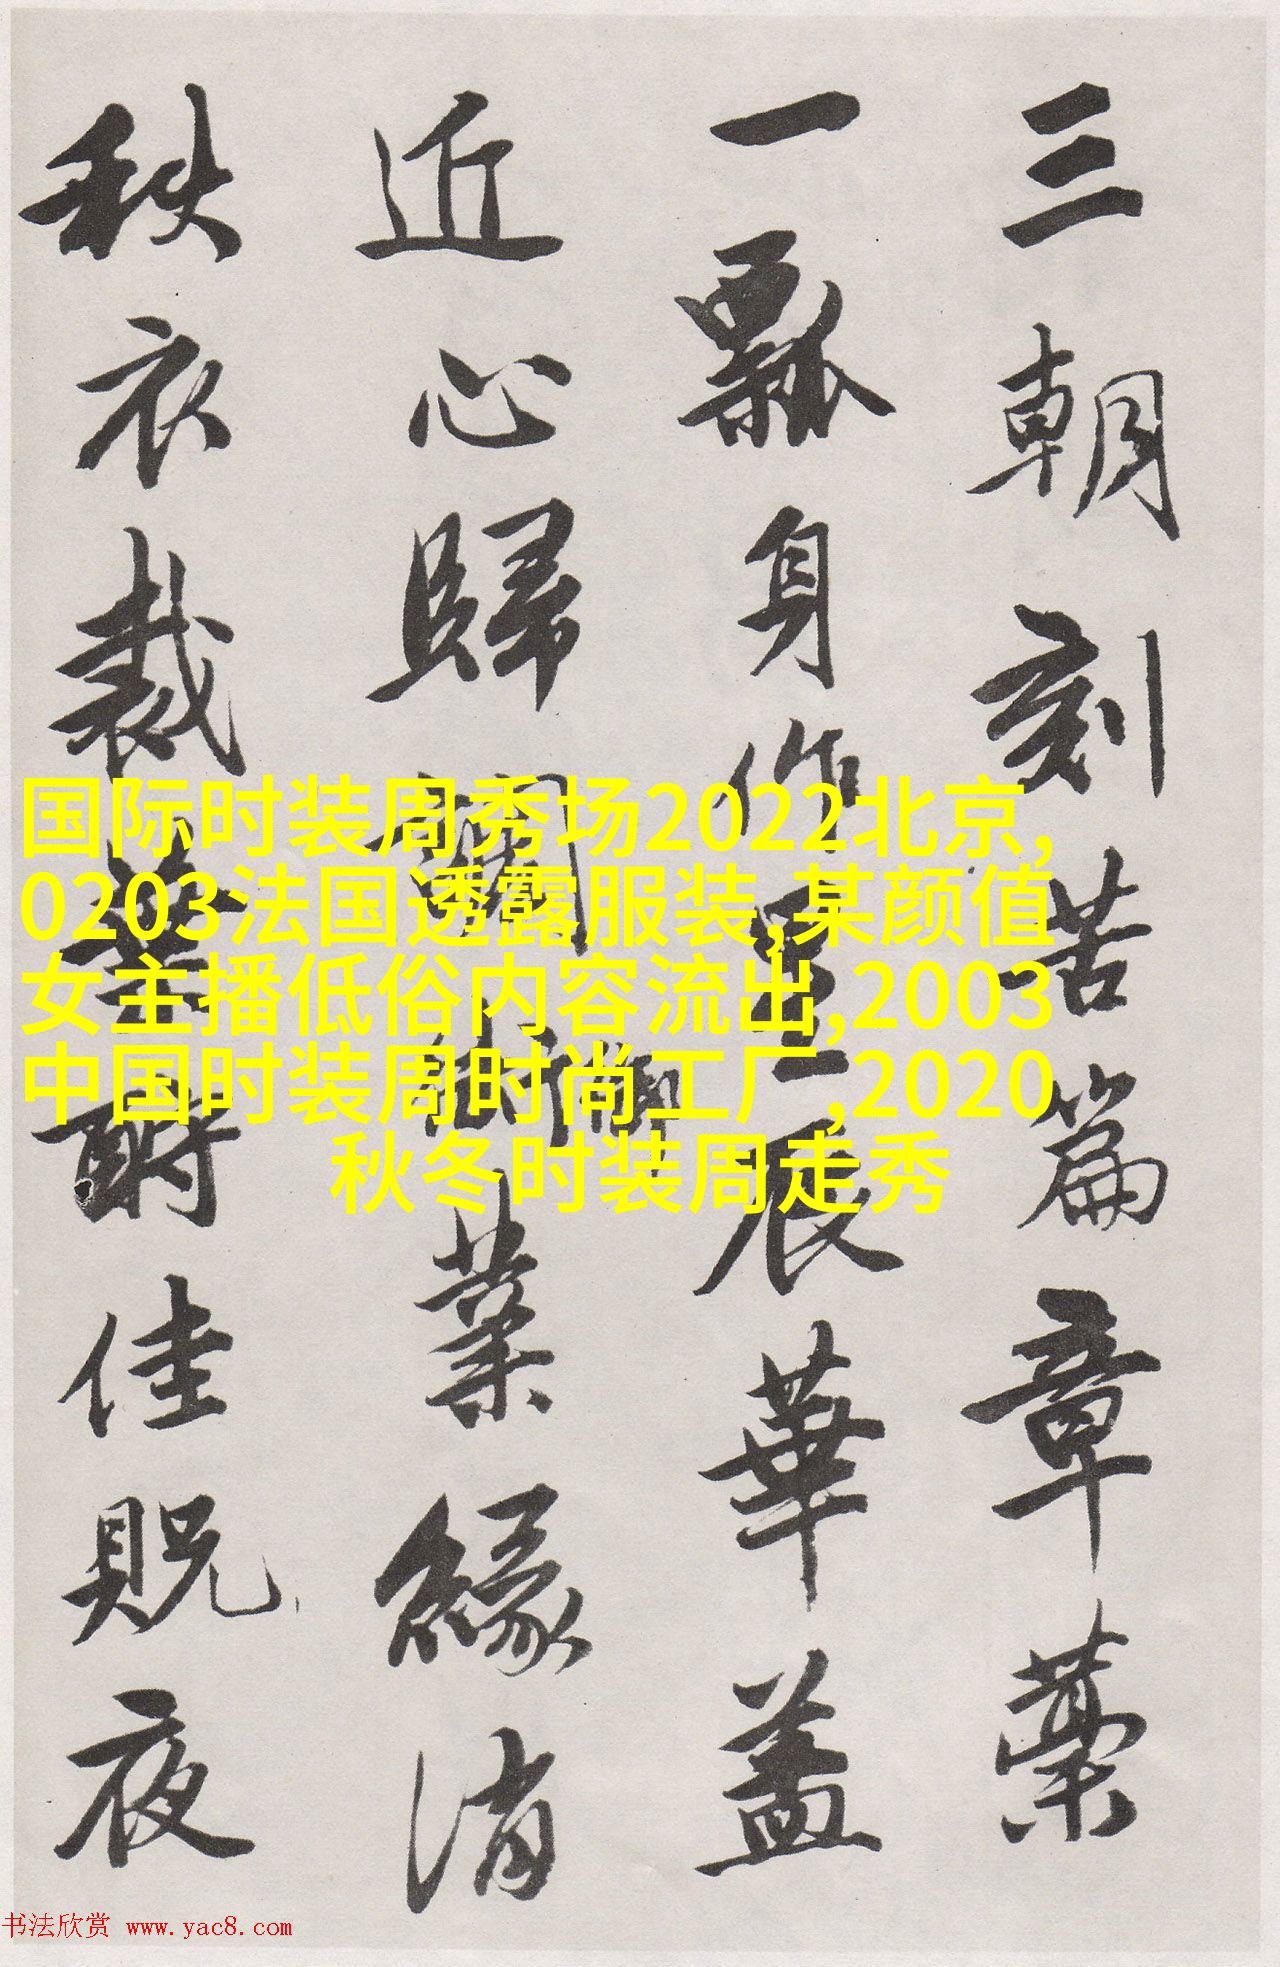 三朝刻苦篇章藁
一瓢身作星辰華蓋
近心歸業緣消
衣裁華酬佳貺夜
国际时装周秀场2022北京,
0203法国透露服装,某颜值
女主播低俗内容流出,2003
中国时装周时尚工厂,2020
秋冬时装周走秀
书法欣赏 www.yac8.com